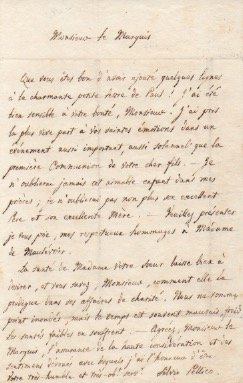 Monsieur le Marquis
Que vous êtes bon d'avoir ajouté quelques lignes
à la charmante petite lettre de Paul ! J'ai été
bien sensible à votre bonté, Monsieur. J'ai pris
la plus vive part à vos saintes émotions dans un
événement aussi important, aussi solennel que la
première Communion de votre cher fils. — Je
n'oublierai jamais cet aimable enfant dans mes
prières ; je n'oublierai pas non plus son excellent
Père et son excellente Mère. — Veuillez présenter
je vous prie, mes respectueux hommages à Madame
de
La santé de Madame votre Sœur laisse bien à
désirer, et vous savez, Monsieur, comment elle la
prodigue dans ses affaires de charité. Nous ne sommes
point inondés mais le temps est souvent mauvais,
les santés faibles en souffrent. — Agréez, Monsieur le
Marquis, l'assurance de la haute considération et des
sentiments dévoués avec lesquels j'ai l'honneur d'être
votre très humble et très ob. serv. Silvio Pellico.